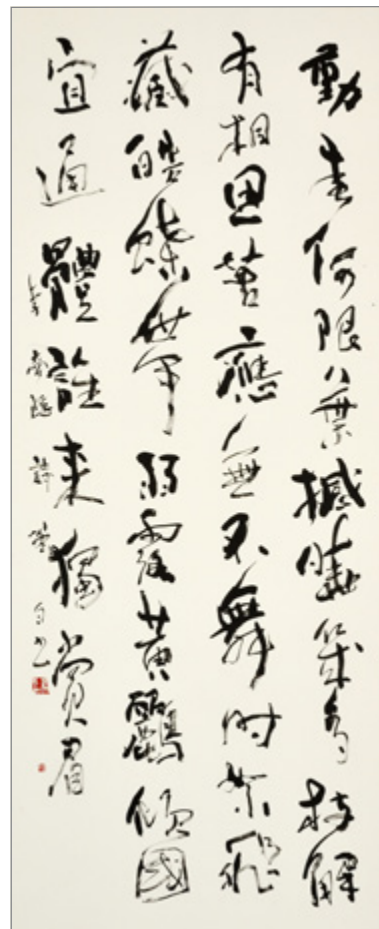 動春何限葉撼曉幾多枝解
有相思苦應無不舞時絮飛
藏皓蝶帶弱露黃鸝傾國
宜通體誰来獨賞眉
李商隱詩